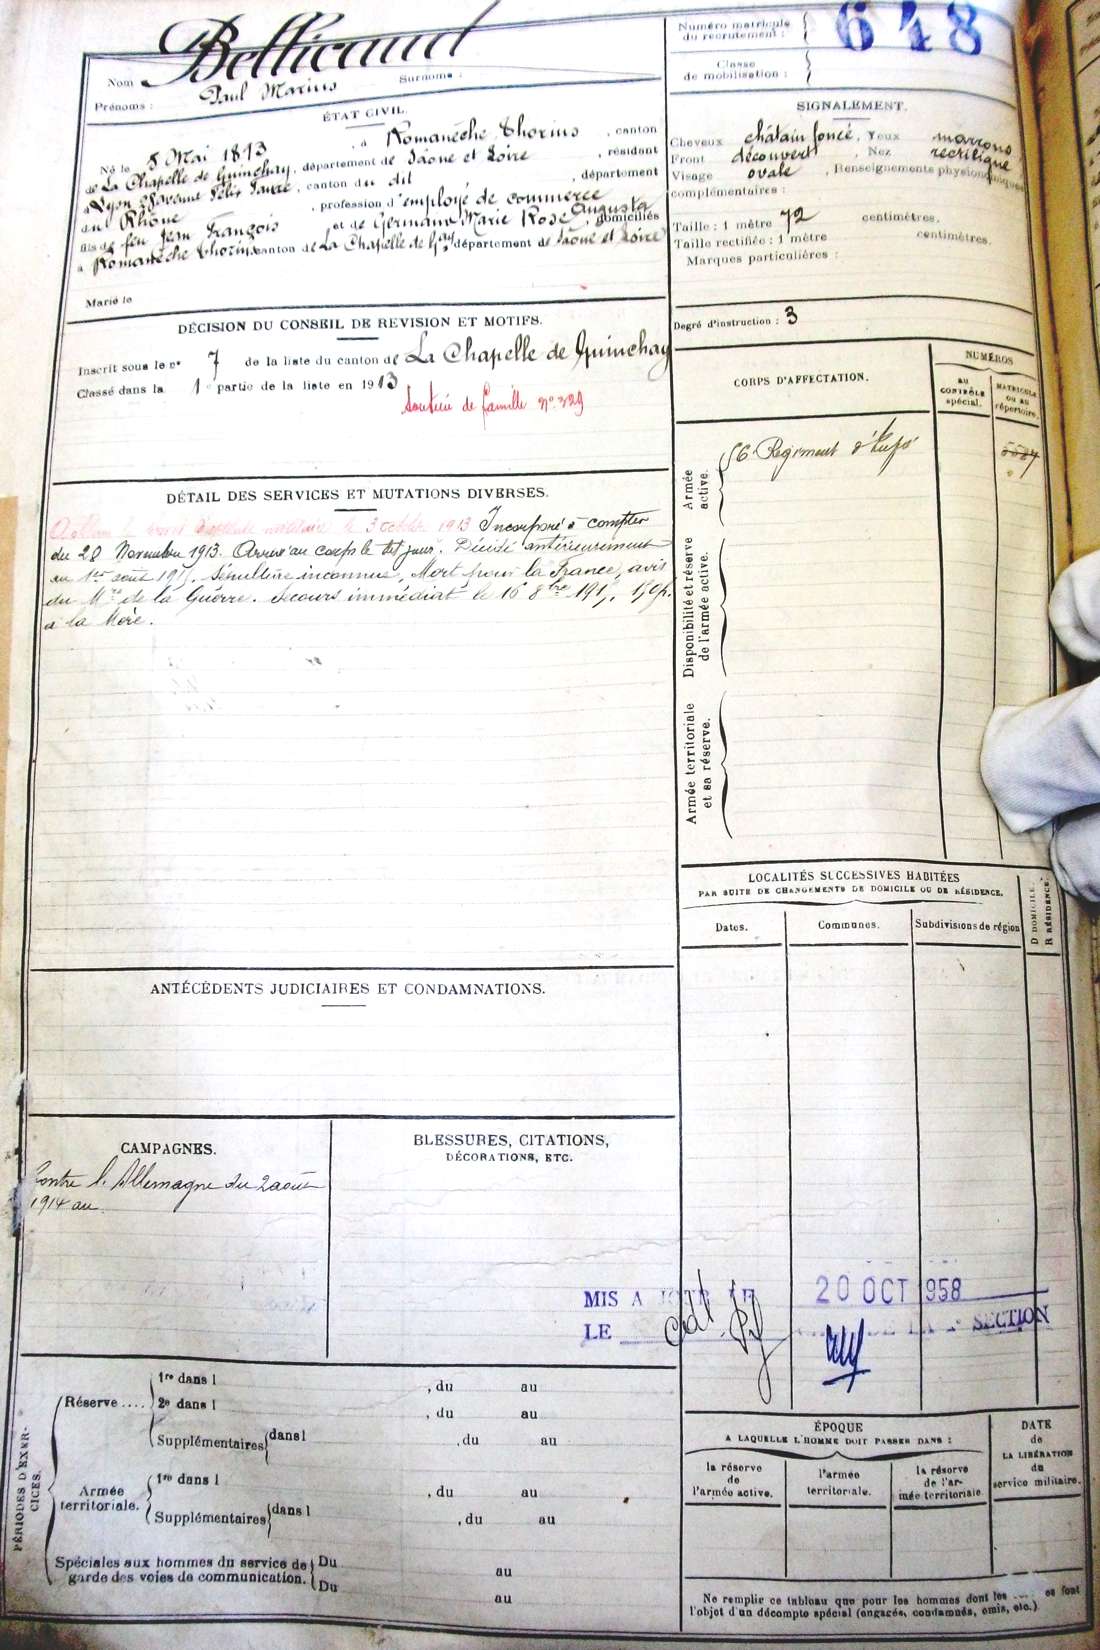 Nom Bellicaud
Prénoms : Paul Marius Surnoms :
Numéro matricule du recrutement : 648
Classe de mobilisation :
ÉTAT CIVIL.
Né le 8 Mai 1893, à Romanèche Thorins, canton
de La Chapelle de Guinchay, département de Saône et Loire, résidant
à Lyon 2 avenue Félix Faure, canton du dit, département
du Rhône, profession d'employé de commerce
fils de feu Jean François et de Germain Marie Rose Augusta domiciliés
à Romanèche Thorins canton de La Chapelle de Gay, département de Saône et Loire
Marié le
SIGNALEMENT.
Cheveux châtain foncé, Yeux marrons
Front découvert, Nez rectiligne
Visage ovale, Renseignements physionomiques
complémentaires :
Taille : 1 mètre 72 centimètres.
Taille rectifiée : 1 mètre centimètres.
Marques particulières :
Degré d'instruction : 3
DÉCISION DU CONSEIL DE REVISION ET MOTIFS.
Inscrit sous le n° 7 de la liste du canton de La Chapelle de Guinchay
Classé dans la 1e partie de la liste en 1913
Soutien de famille n° 329
CORPS D'AFFECTATION.
NUMÉROS
AU CONTRÔLE spécial.
MATRICULE OU AU répertoire.
Armée active.
56e Régiment d'Infie
Disponibilité et réserve de l'armée active.
Armée territoriale et sa réserve.
DÉTAIL DES SERVICES ET MUTATIONS DIVERSES.
le 3 octobre 1913 Incorporé à compter
du 28 Novembre 1913. Arrivé au corps le dit jour. Décédé antérieurement
au 1er août 191 . Sépulture inconnue, Mort pour la France, avis
du Mre de la Guerre. Secours immédiat le 16 8bre 191 , 150f.
à la Mère.
LOCALITÉS SUCCESSIVES HABITÉES
PAR SUITE DE CHANGEMENTS DE DOMICILE OU DE RÉSIDENCE.
Dates. Communes. Subdivisions de région
D DOMICILE.
R RÉSIDENCE.
ANTÉCÉDENTS JUDICIAIRES ET CONDAMNATIONS.
CAMPAGNES.
Contre l'Allemagne du 2 août
1914 au
BLESSURES, CITATIONS,
DÉCORATIONS, ETC.
MIS A JOUR LE 20 OCT 1958
LE DE LA SECTION
PÉRIODES D'EXERCICES.
Réserve ....
1re dans l , du au
2e dans l , du au
Supplémentaires dans l , du au
Armée territoriale.
1re dans l , du au
Supplémentaires dans l , du au
Spéciales aux hommes du service de garde des voies de communication.
Du au
Du au
ÉPOQUE
A LAQUELLE L'HOMME DOIT PASSER DANS :
la réserve de l'armée active.
l'armée territoriale.
la réserve de l'armée territoriale
DATE de LA LIBÉRATION du service militaire.
Ne remplir ce tableau que pour les hommes dont les es font
l'objet d'un décompte spécial (engagés, condamnés, omis, etc.)